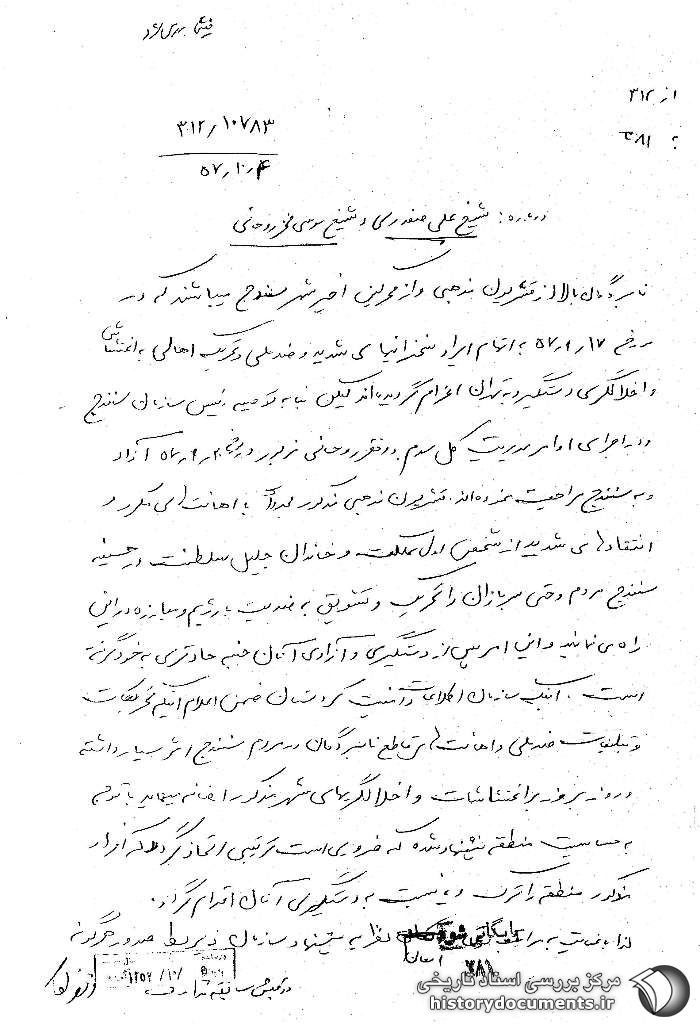 از ۳۱۲
به ۳۸۱
۳۱۲/۱۰۷۸۳
۵۷/۱۰/۴
درباره: شیخ علی صفدری و شیخ موسی فخر روحانی
نامبردگان بالا از قشریون مذهبی و از محرکین اخیر شهر سنندج میباشند که در
تاریخ ۵۷/۹/۱۷ به اتهام ایراد سخنرانیهای شدید و ضد ملی و تحریک اهالی به اغتشاش
و اخلالگری دستگیر و به تهران اعزام گردیده‌اند لیکن بنا به توصیه رئیس سازمان سنندج
و در اجرای اوامر مدیریت کل سوم دو نفر روحانی مزبور در تاریخ ۵۷/۹/۲۰ آزاد
و به سنندج مراجعت نموده‌اند. قشریون مذهبی مذکور مجدداً با اهانت‌های مکرر و
انتقادهای شدید از شخص اول مملکت و خاندان جلیل سلطنت در حسینیه
سنندج مردم و حتی سربازان را تحریک و تشویق به ضدیت با رژیم و مبارزه در این
راه می‌نمایند و این امر پس از دستگیری و آزادی آنان جنبه حادتری به خود گرفته
است. اینک سازمان اطلاعات و امنیت کردستان ضمن اعلام اینکه تحریکات
و تبلیغات ضد ملی و اهانت‌های قاطع نامبردگان در مردم سنندج اثر بسیار داشته
و روز بروز بر اغتشاشات و اخلالگریهای شهر مذکور اضافه مینماید با توجه
به حساسیت منطقه پیشنهاد شده که ضروری است ترتیبی اتخاذ گردد که افراد
مذکور منطقه را ترک و یا نسبت به دستگیری آنان اقدام گردد.
لذا با عنایت به مراتب نظریه پیشنهاد سازمان ذیربط صدور هرگونه
بایگانی شود
۳۸۱
مرکز بررسی اسناد تاریخی
historydocuments.ir